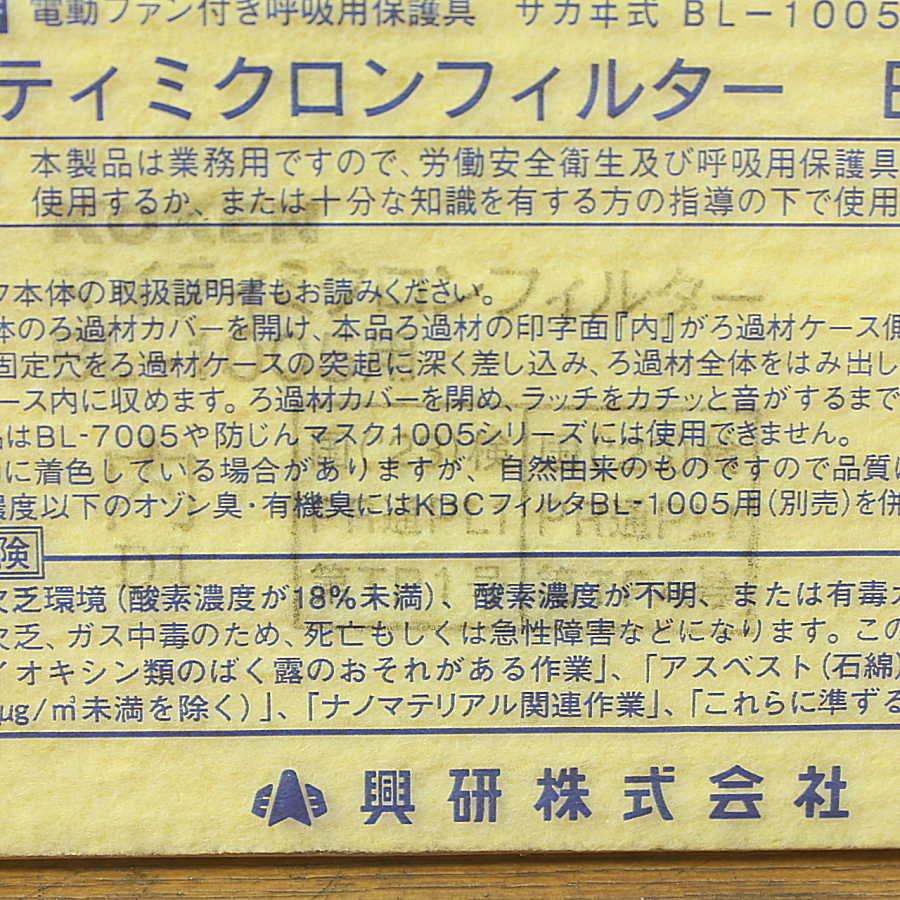 電動ファン付き呼吸用保護具 サカヰ式 BL－1005
ティミクロンフィルター
本製品は業務用ですので、労働安全衛生及び呼吸用保護具
使用するか、または十分な知識を有する方の指導の下で使用
KOKEN
マイティミクロンフィルター
ク本体の取扱説明書もお読みください。
体のろ過材カバーを開け、本品ろ過材の印字面『内』がろ過材ケース側
固定穴をろ過材ケースの突起に深く差し込み、ろ過材全体をはみ出し
ース内に収めます。ろ過材カバーを閉め、ラッチをカチッと音がするまで
品はBL-7005や防じんマスク1005シリーズには使用できません。
に着色している場合がありますが、自然由来のものですので品質に
濃度以下のオゾン臭・有機臭にはKBCフィルタBL-1005用(別売)を併
険
欠乏環境(酸素濃度が18%未満)、酸素濃度が不明、または有毒ガ
欠乏、ガス中毒のため、死亡もしくは急性障害などになります。この
イオキシン類のばく露のおそれがある作業」、「アスベスト(石綿)
μg/㎥未満を除く)」、「ナノマテリアル関連作業」、「これらに準ずる
興研株式会社